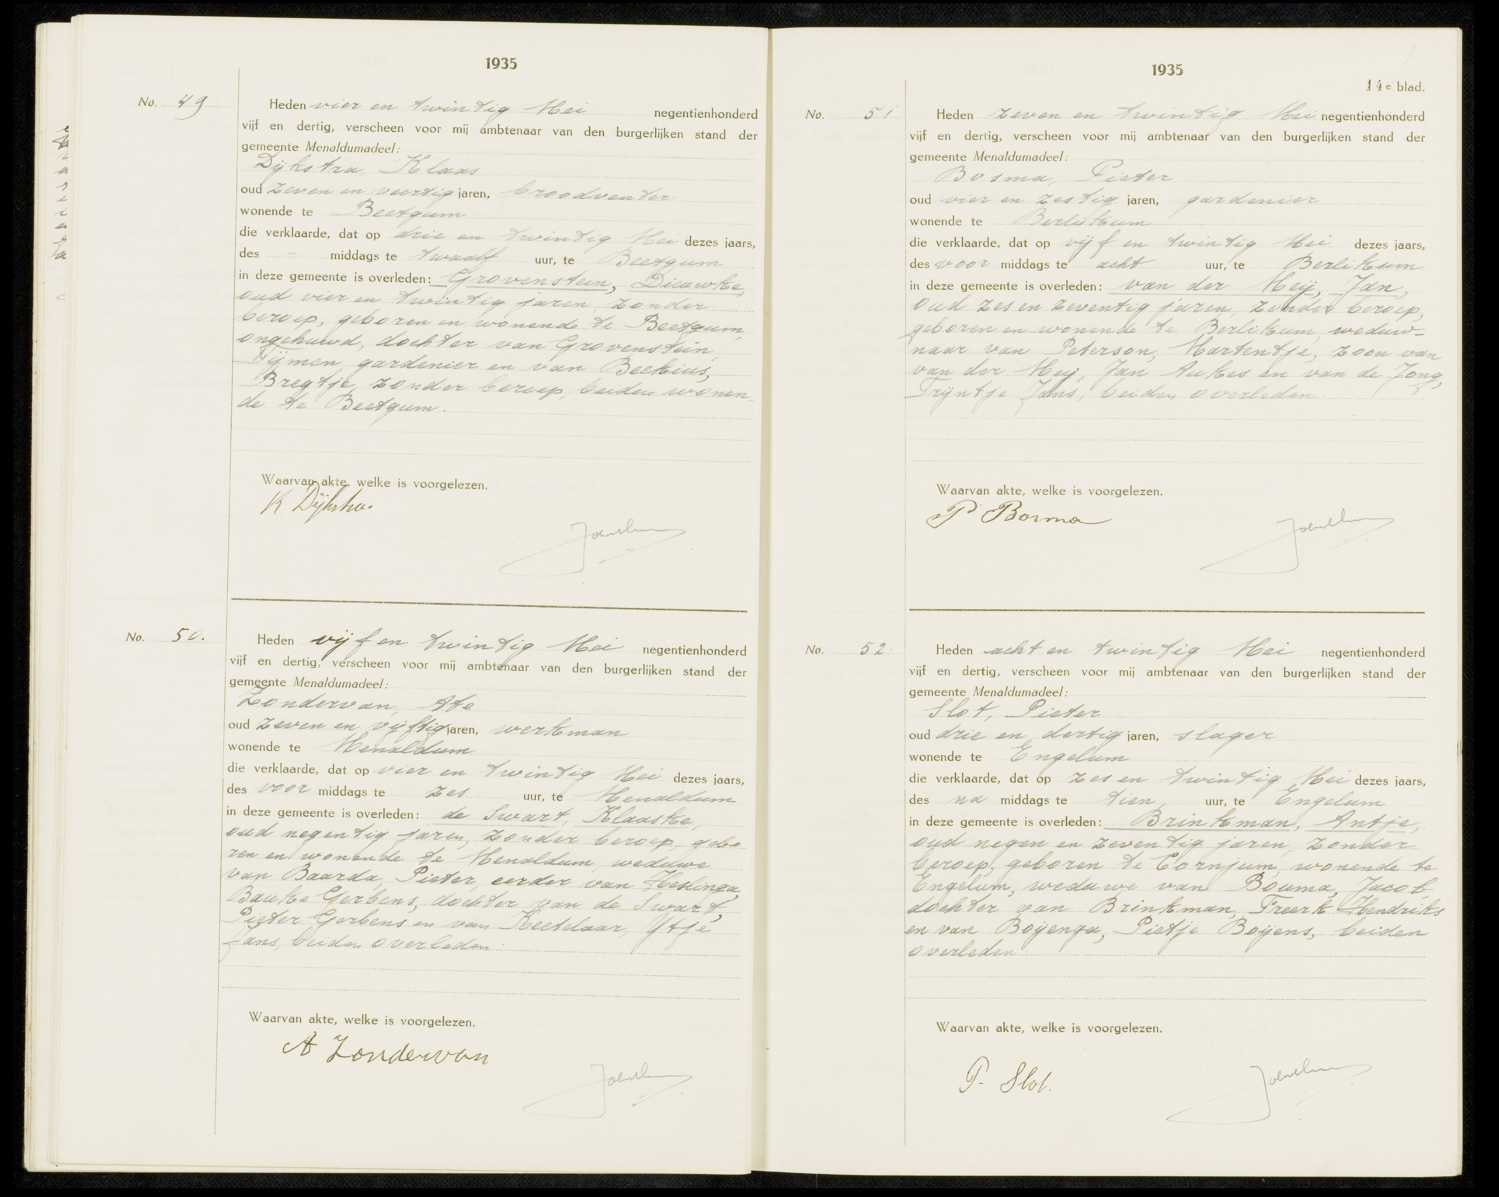 1935
No. 49
Heden vier en twintig Mei negentienhonderd
vijf en dertig, verscheen voor mij ambtenaar van den burgerlijken stand der
gemeente Menaldumadeel:
Dijkstra, Klaas
oud zeven en veertig jaren, broodventer
wonende te Beetgum
die verklaarde, dat op drie en twintig Mei dezes jaars,
des - middags te twaalf uur, te Beetgum
in deze gemeente is overleden: Grovenstein, Dieuwke,
oud vier en twintig jaren, zonder
beroep, geboren en wonende te Beetgum,
ongehuwd, dochter van Grovenstein,
Tijmen, gardenier en van Beekius,
Bregtje, zonder beroep, beiden wonen
de te Beetgum.
Waarvan akte, welke is voorgelezen.
K Dijkstra.
No. 50.
Heden vijf en twintig Mei negentienhonderd
vijf en dertig, verscheen voor mij ambtenaar van den burgerlijken stand der
gemeente Menaldumadeel:
Zondervan, Ate
oud zeven en vijftig jaren, werkman
wonende te Menaldum
die verklaarde, dat op vier en twintig Mei dezes jaars,
des voor middags te zes uur, te Menaldum
in deze gemeente is overleden: de Swart, Klaaske,
oud negentig jaren, zonder beroep, gebo-
ren en wonende te Menaldum, weduwe
van Baarda, Pieter, eerder van Heslinga,
Bauke Gerbens, dochter van de Swart,
Pieter Gerbens en van Keetelaar, Ytje
Jans, beiden overleden.
Waarvan akte, welke is voorgelezen.
A Zondervan
1935
14e blad.
No. 51
Heden zeven en twintig Mei negentienhonderd
vijf en dertig, verscheen voor mij ambtenaar van den burgerlijken stand der
gemeente Menaldumadeel:
Bosma, Pieter
oud vier en zestig jaren, gardenier
wonende te Berlikum
die verklaarde, dat op vijf en twintig Mei dezes jaars,
des voor middags te acht uur, te Berlikum
in deze gemeente is overleden: van der Meij, Jan,
oud zes en zeventig jaren, zonder beroep,
geboren en wonende te Berlikum, weduw-
naar van Peterson, Martentje, zoon van
van der Meij, Jan Aukes en van de Jong,
Trijntje Jans, beiden overleden.
Waarvan akte, welke is voorgelezen.
P Bosma
No. 52
Heden acht en twintig Mei negentienhonderd
vijf en dertig, verscheen voor mij ambtenaar van den burgerlijken stand der
gemeente Menaldumadeel:
Slot, Pieter
oud drie en dertig jaren, slager
wonende te Engelum
die verklaarde, dat op zes en twintig Mei dezes jaars,
des na middags te tien uur, te Engelum
in deze gemeente is overleden: Brinkman, Antje,
oud negen en zeventig jaren, zonder
beroep, geboren te Cornjum, wonende te
Engelum, weduwe van Bouma, Jacob
dochter van Brinkman, Freerk Hendriks
en van Boyenga, Pietje Boyens, beiden
overleden
Waarvan akte, welke is voorgelezen.
P. Slot.